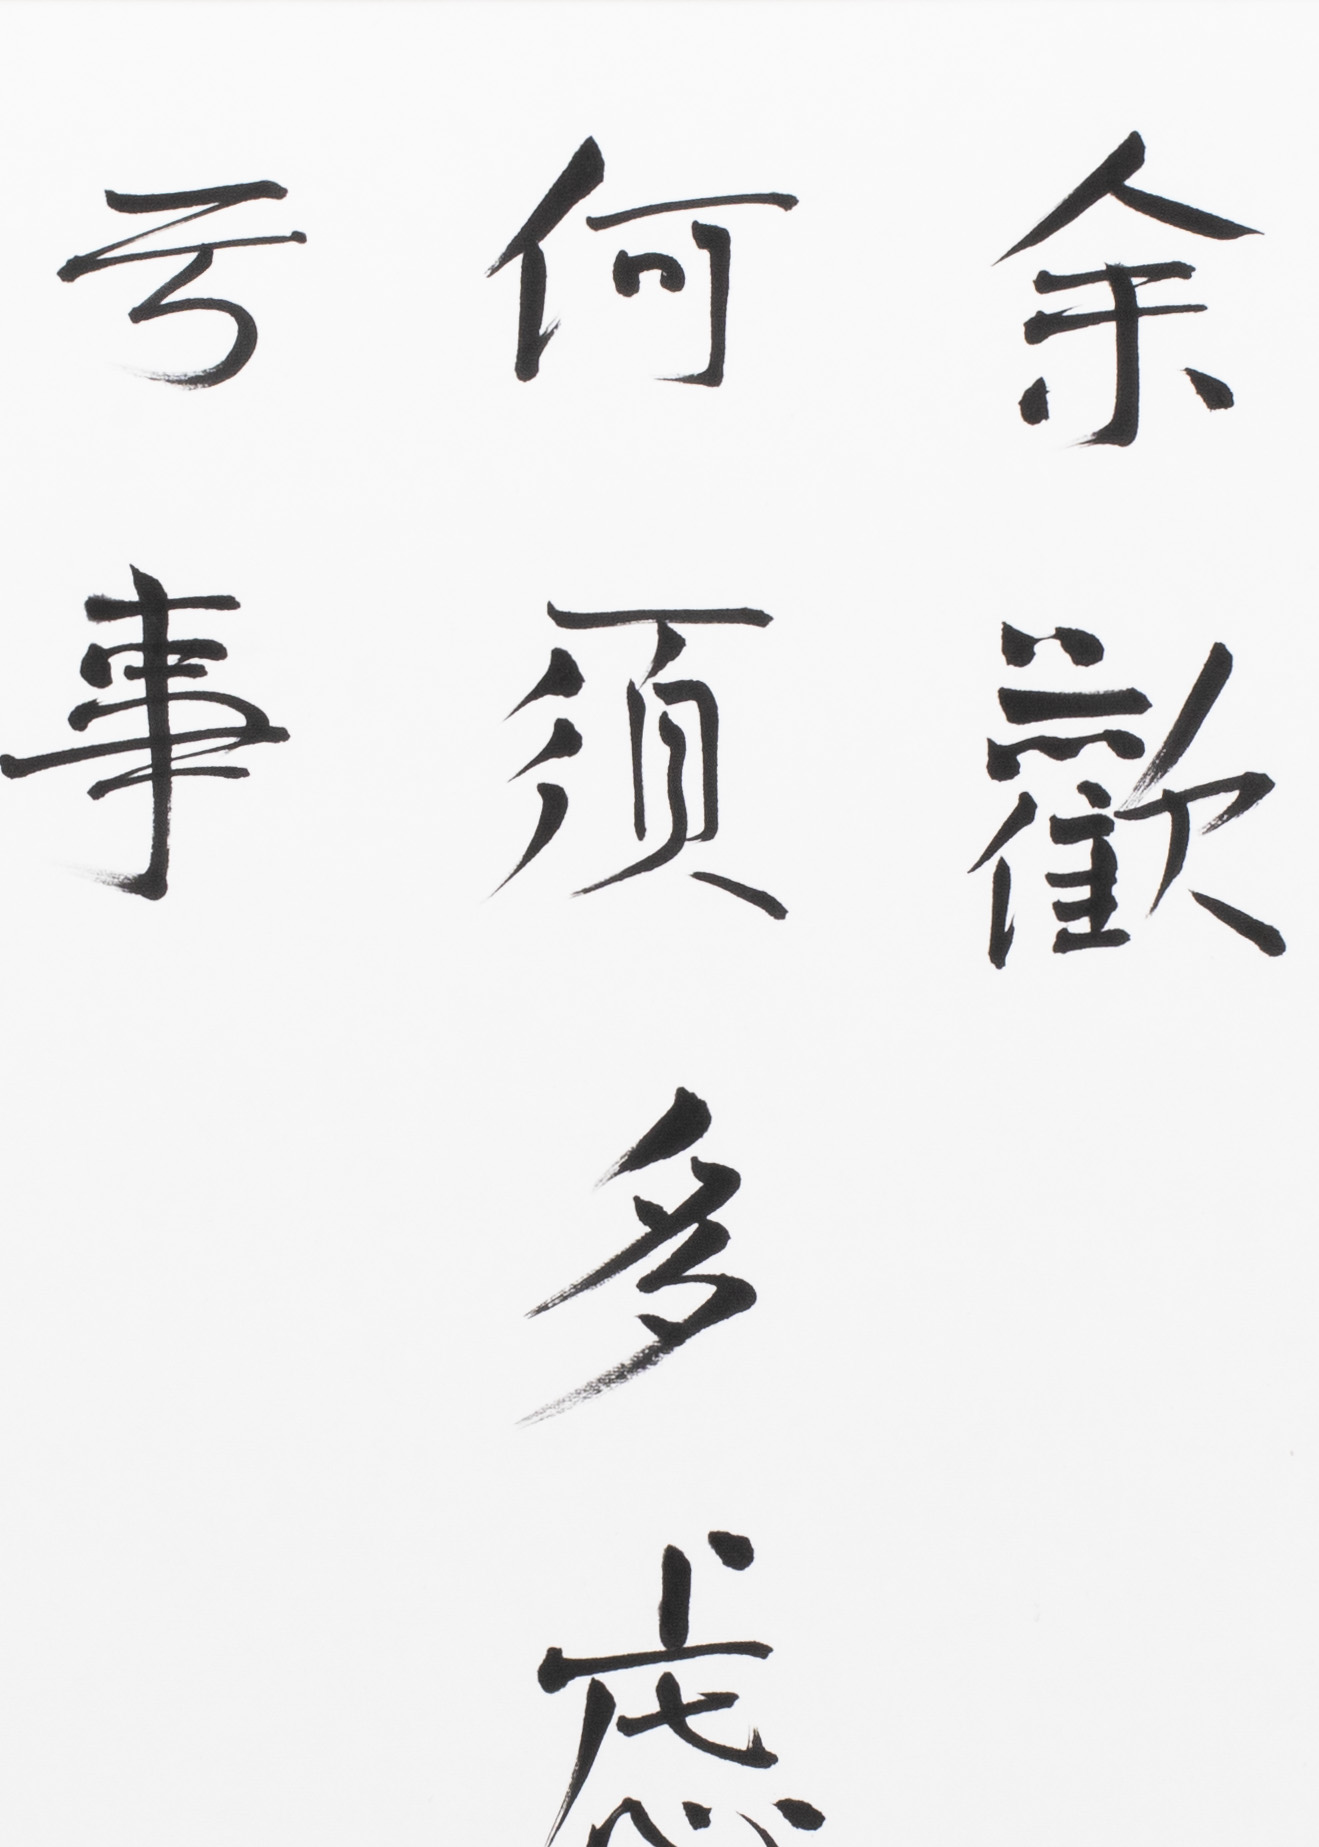 余歡
何須多虑
亏事